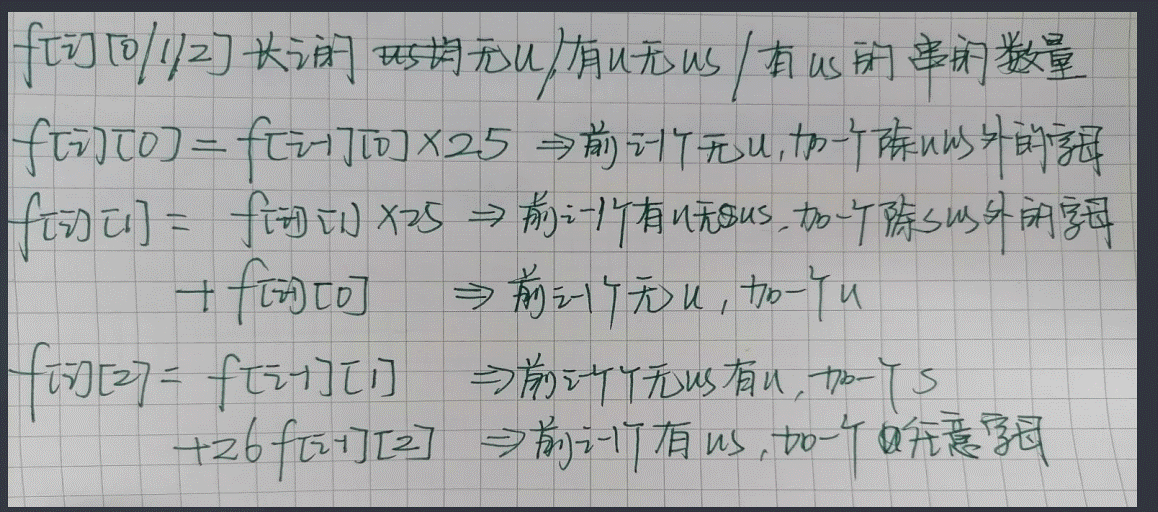 f[i][0/1/2] 长i的 无u/有u无us/有us的串的数量
f[i][0] = f[i-1][0]×25 ⇒前i-1个无u,加一个除u以外的字母
f[i][1] = f[i-1][1]×25 ⇒前i-1个有u无us,加一个除s以外的字母
+ f[i-1][0] ⇒前i-1个无u,加一个u
f[i][2] = f[i-1][1] ⇒前i-1个无us有u,加一个s
+26f[i-1][2] ⇒前i-1个有us,加一个任意字母